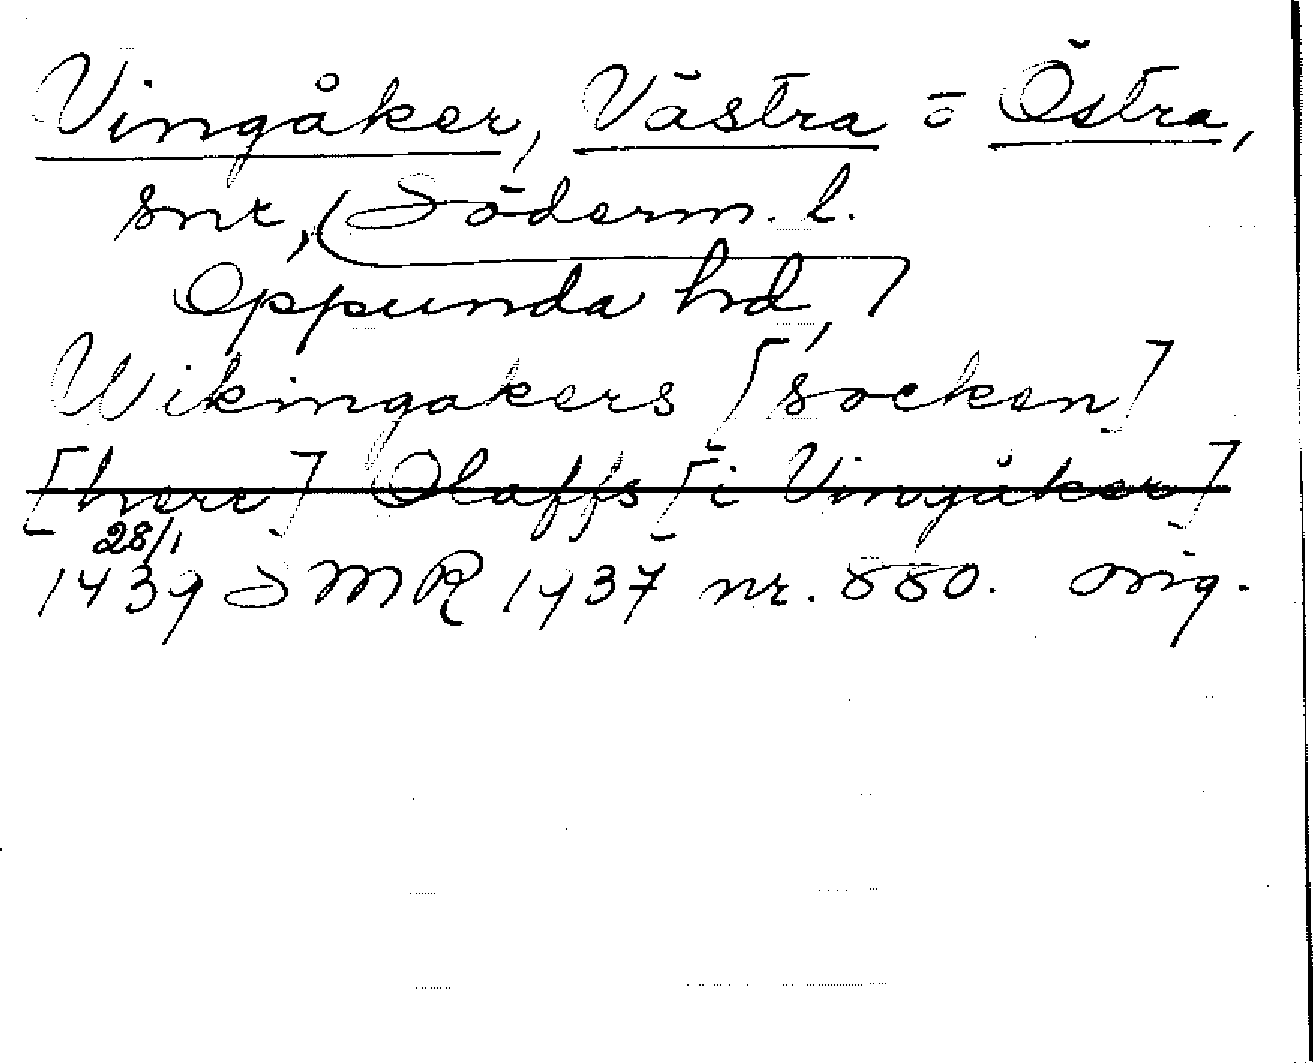 Vingåker, Västra o Östra,
snr, Söderm. l.
Oppunda hd,
Wikingakers [socken]
[here] Olaffs [i Vingåker]
28/1
1439 SMR 1937 nr. 880. orig.